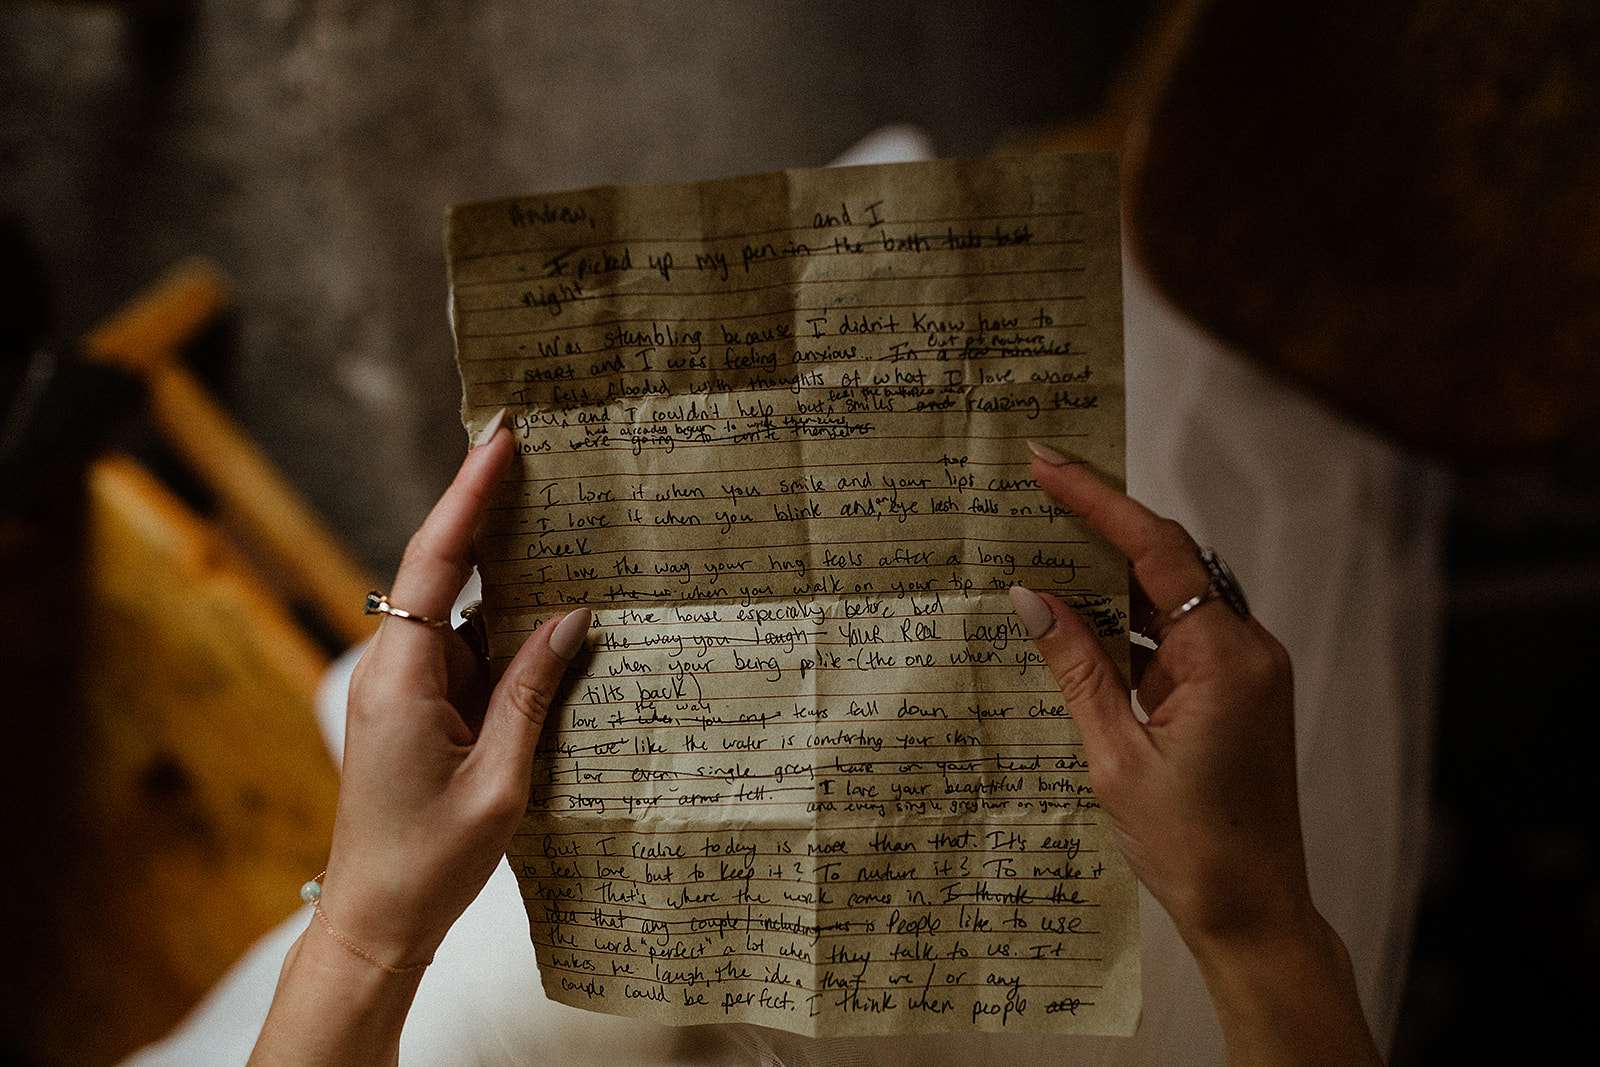 Andrew,
and I
- I picked up my pen in the bath tub last
night.
- Was stumbling because I didn't know how to
out of nowhere
start and I was feeling anxious... In a few minutes
I felt flooded with thoughts of what I love about
feel the butterflies and
you, and I couldn't help but smiles and realizing these
had already begun to write themselves
vows were going to write themselves
top
- I love it when you smile and your lips curve
- I love it when you blink and, an eye lash falls on you
cheek
- I love the way your hug feels after a long day
- I love the w when you walk on your tip toes
the house especially before bed
the way you laugh YOUR REAL LAUGH!
when your being polite - (the one when you
tilts back)
the way
love it when you cry tears fall down your chee
like the water is comforting your skin
I love every single grey hair on your head and
story your arms tell. I love your beautiful birthma
and every single grey hair on your hea
But I realize today is more than that. It's easy
to feel love but to keep it? To nurture it? To make it
true? That's where the work comes in. I think the
idea that any couple/including us is People like to use
the word "perfect" a lot when they talk to us. It
makes me laugh, the idea that we / or any
couple could be perfect. I think when people are